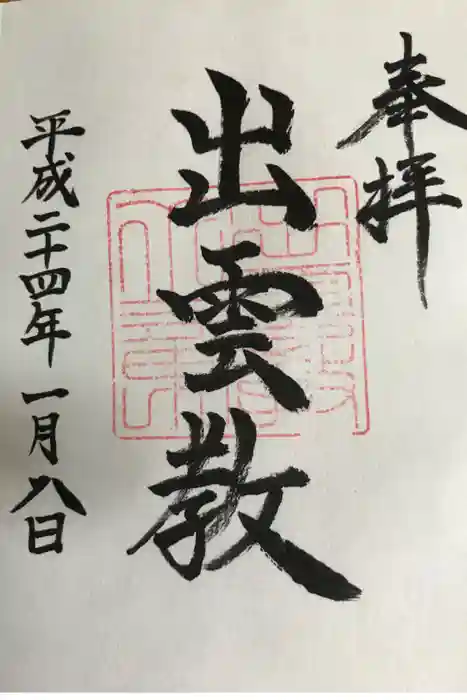 奉拝
出雲教
平成二十四年一月八日